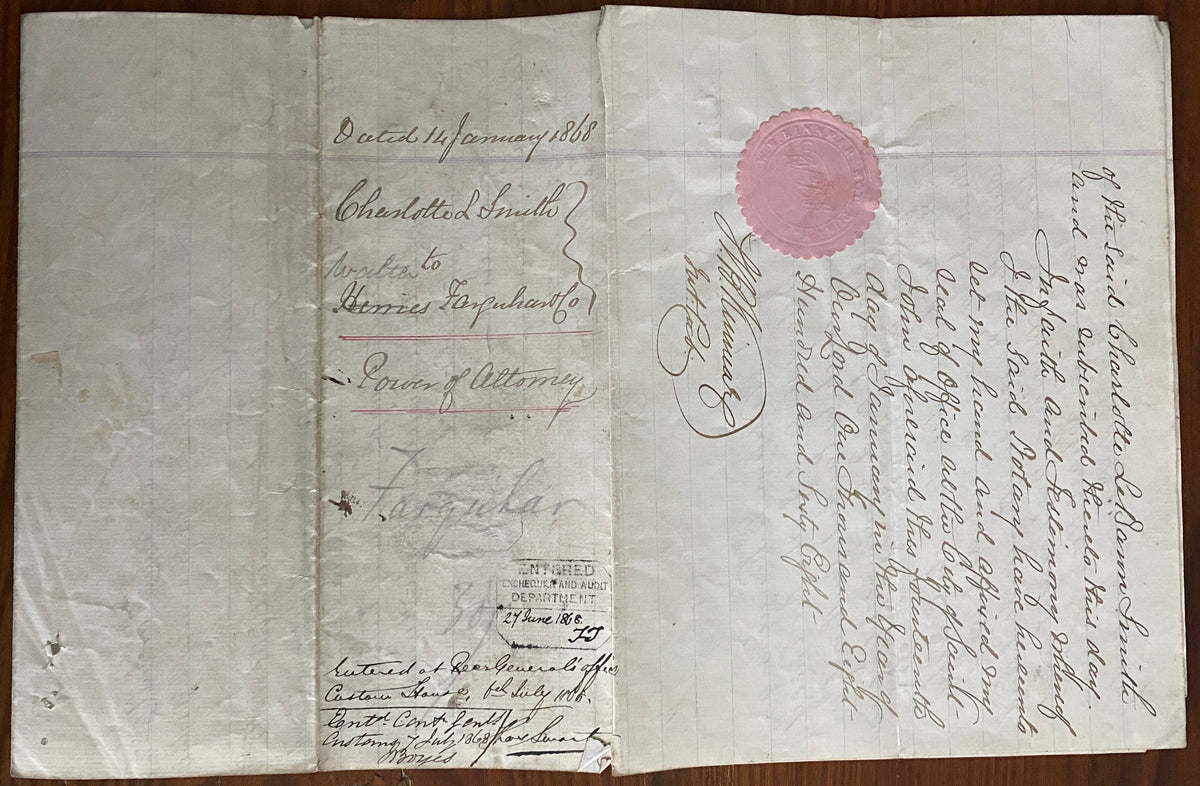 Dated 14 January 1868
Charlotte L Smith
Walter to
Herries Farquhar & Co
Power of Attorney
Farquhar
30/
ENTERED
EXCHEQUER AND AUDIT
DEPARTMENT
27 June 1868.
Entered at Recr General's office
Custom House, 6th July 1868.
Entd. Contr Genls
Customs 7 July 1868
of the said Charlotte LeBaron Smith
and was subscribed hereto this day.
In faith and testimony whereof
I the said Notary have hereunto
set my hand and affixed my
Seal of Office at the City of Saint
John aforesaid this fourteenth
day of January in the year of
Our Lord One Thousand Eight
Hundred and Sixty Eight
Not Pub